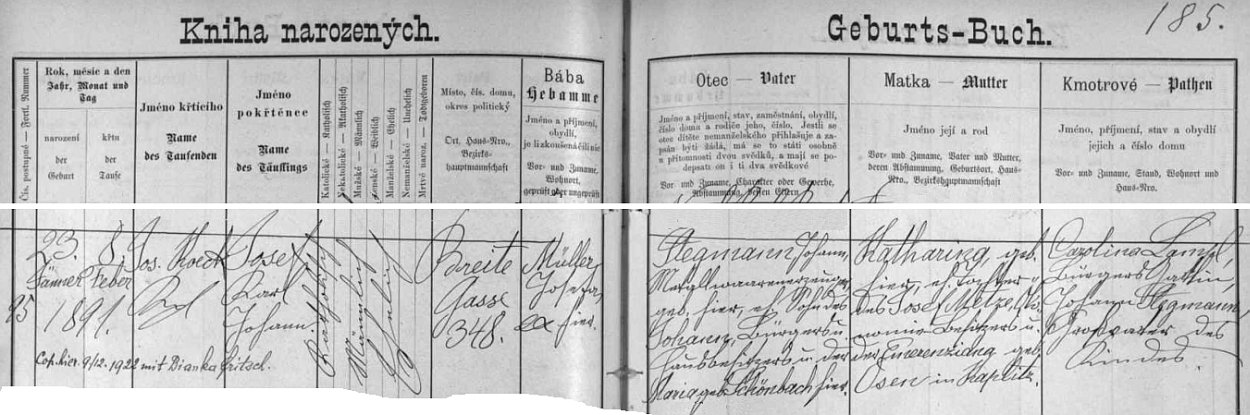 Kniha narozených.
Geburts-Buch.
185.
Čís. postupné — Fortl. Nummer
Rok, měsíc a den
Jahr, Monat und
Tag
narození
der
Geburt
křtu
der
Taufe
Jméno křtícího
Name
des Taufenden
Jméno
pokřtěnce
Name
des Täuflings
Katolické — Katholisch
Nekatolické — Akatholisch
Mužské — Männlich
Ženské — Weiblich
Manželské — Ehelich
Nemanželské — Unehelich
Mrtvě naroz. — Todtgeboren
Místo, čís. domu,
okres politický
Ort, Haus-Nro.,
Bezirks-
hauptmannschaft
Bába
Hebamme
Jméno a příjmení,
obydlí,
je li zkoušená či nic
Vor- und Zuname,
Wohnort,
geprüft oder ungeprüft
Otec — Vater
Jméno a příjmení, stav, zaměstnání, obydlí,
číslo domu a rodiče jeho, číslo. Jestli se
otec dítěte nemanželského přihlašuje a za-
psán býti žádá, má se to státi osobně
u přítomnosti dvou svědků, a mají se po-
depsati on i ti dva svědkové
Vor- und Zuname, Charakter oder Gewerbe,
Abstammung, dessen Eltern
Matka — Mutter
Jméno její a rod
Vor- und Zuname, Vater und Mutter,
deren Abstammung, Geburtsort, Haus-
Nro., Bezirkshauptmannschaft
Kmotrové — Pathen
Jméno, příjmení, stav a obydlí
jejich a číslo domu
Vor- und Zuname, Stand, Wohnort und
Haus-Nro.
23.
Jänner
8.
Feber
1891.
Jos. Koeck
Josef
Karl
Johann.
Katholisch
Männlich
Ehelich
Breite
Gasse
348.
Müller
Josefa,
hier.
Stegmann Johann,
Metallwaarenerzeuger,
geb. hier, eh. Sohn des
Johann, Bürgers u.
Hausbesitzers u. der
Maria geb. Schönbach hier.
Katharina, geb.
hier, eh. Tochter
des Josef Metzel, Öko-
nomie-Besitzers u.
der Emerenziana geb.
Osen in Kaplitz.
Carolina Lampl,
Bürgers Gattin,
Johann Stegmann
Großvater des
Kindes.
Cop. hier. 9/12. 1922 mit Dianka Fritsch.